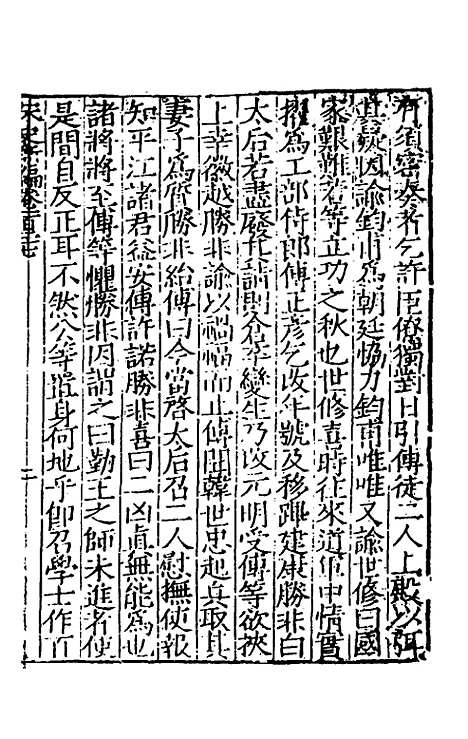 有須密奏者乞許臣僚獨對日引傅徒二人上殿以弭
其疑因諭鈞甫爲朝廷協力鈞甫唯唯又諭世修曰國
家艱難若等立功之秋也世修喜時往來道軍中情實
擢爲工部侍郎傅正彥乞改年號及移蹕建康勝非白
太后若盡廢其請則倉卒變生乃改元明受傅等欲挾
上幸徽越勝非諭以禍福而止傅聞韓世忠起兵取其
妻子爲質勝非紿傅曰今當啓太后召二人慰撫使報
知平江諸君益安傅許諾勝非喜曰二凶真無能爲也
諸將將至傅等懼勝非因謂之曰勤王之師未進者使
是間自反正耳不然公等置身何地乎卽召學士作百
宋史新編卷